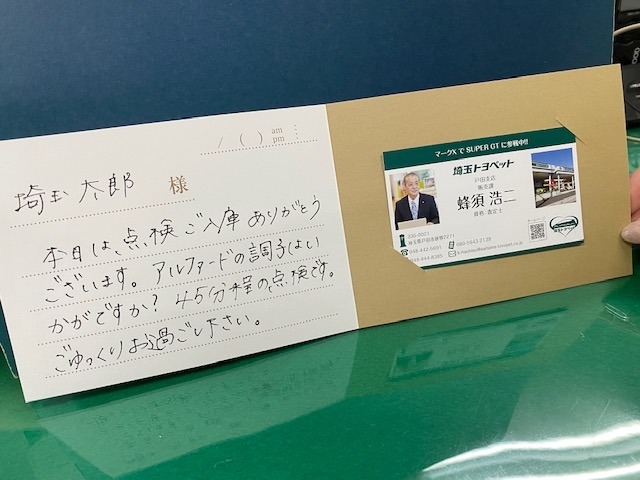 / ( ) am
pm :
埼玉 太郎 様
本日は、点検ご入庫ありがとう
ございます。アルファードの調子はい
かがですか？ 45分程の点検です。
ごゆっくりお過ごし下さい。
マークXで SUPER GT に参戦中!!
埼玉トヨペット
戸田支店
販売課
蜂須 浩二
資格：査定士